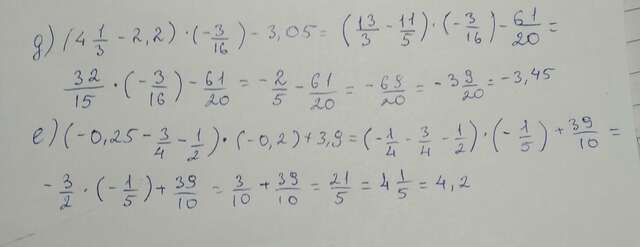 д) (4 1/3 - 2,2) · (-3/16) - 3,05 = (13/3 - 11/5) · (-3/16) - 61/20 =
32/15 · (-3/16) - 61/20 = -2/5 - 61/20 = -69/20 = -3 9/20 = -3,45
е) (-0,25 - 3/4 - 1/2) · (-0,2) + 3,9 = (-1/4 - 3/4 - 1/2) · (-1/5) + 39/10 =
-3/2 · (-1/5) + 39/10 = 3/10 + 39/10 = 21/5 = 4 1/5 = 4,2